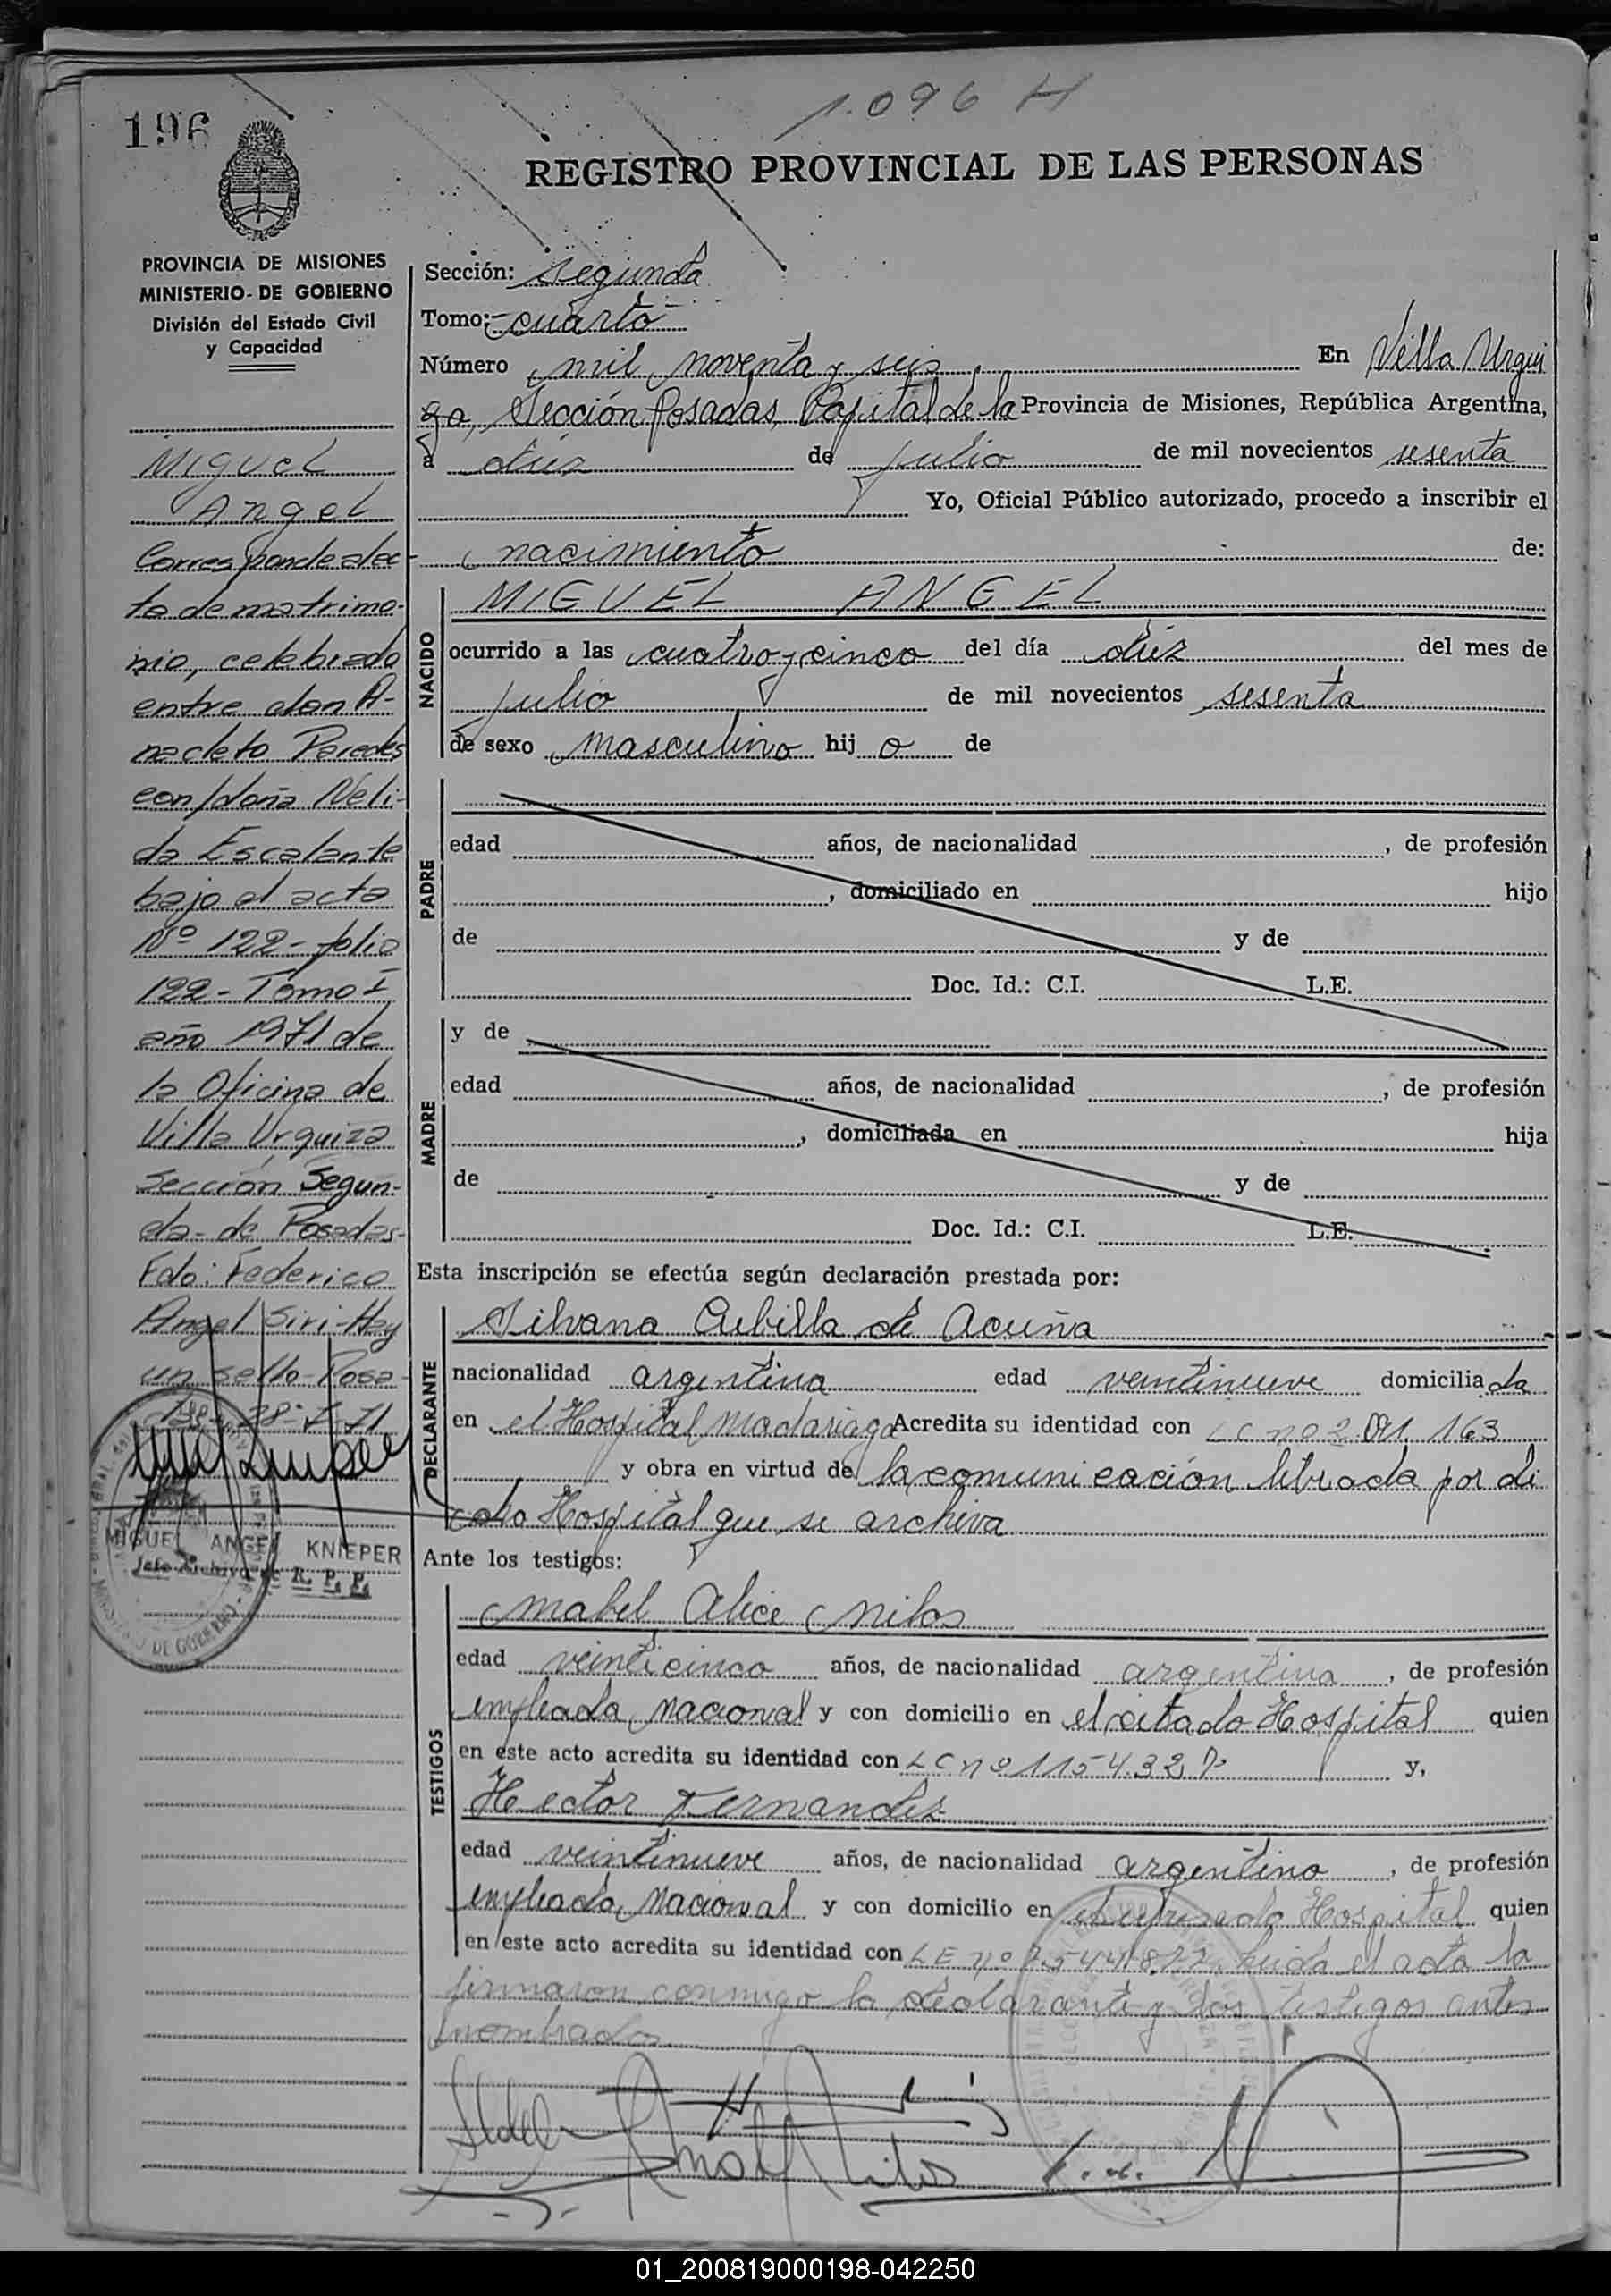 1.096 H
196
REGISTRO PROVINCIAL DE LAS PERSONAS
PROVINCIA DE MISIONES
MINISTERIO DE GOBIERNO
División del Estado Civil
y Capacidad
Miguel
Angel
Corresponde al ac-
ta de matrimo-
nio, celebrado
entre don A-
nacleto Paredes
con/doña Neli-
da Escalante
bajo el acta
Nº 122 - folio
122 - Tomo I
año 1971 de
la Oficina de
Villa Urquiza
Sección Segun-
da - de Posadas-
Fdo: Federico
Angel Siri - Hay
un sello - Posa-
MIGUEL ANGEL KNIEPER
Jefe Archivo de R. P. P.
Sección: segunda
Tomo: cuarto
Número mil noventa y seis En Villa Urqui
za, Sección Posadas, Capital de la Provincia de Misiones, República Argentina,
a diez de julio de mil novecientos sesenta
Yo, Oficial Público autorizado, procedo a inscribir el
nacimiento de:
NACIDO
MIGUEL ANGEL
ocurrido a las cuatro y cinco del día diez del mes de
julio de mil novecientos sesenta
de sexo masculino hij o de
PADRE
edad años, de nacionalidad , de profesión
, domiciliado en hijo
de y de
Doc. Id.: C.I. L.E.
MADRE
y de
edad años, de nacionalidad , de profesión
, domiciliada en hija
de y de
Doc. Id.: C.I. L.E.
Esta inscripción se efectúa según declaración prestada por:
DECLARANTE
Silvana Cubilla de Acuña
nacionalidad argentina edad veintinueve domicilia da
en el Hospital Madariaga Acredita su identidad con LC nº 2.091.163
y obra en virtud de la comunicación librada por di
cho Hospital que se archiva
Ante los testigos:
TESTIGOS
Mabel Alice Milos
edad veinticinco años, de nacionalidad argentina, de profesión
empleada nacional y con domicilio en el citado Hospital quien
en este acto acredita su identidad con LC nº 1154.32 y,
Hector Fernandez
edad veintinueve años, de nacionalidad argentino, de profesión
empleado nacional y con domicilio en el Hospital quien
en este acto acredita su identidad con LE nº 7.544.822. Leida el acta la
firmaron conmigo la declarante y los testigos antes
nombrados.
01_200819000198-042250